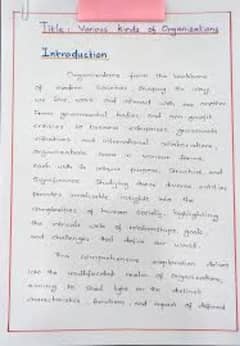 Title : Various kinds of Organizations
Introduction
Organizations form the backbone
of modern societies shaping the way
we live, work and interact with one another
From governmental bodies and non-profit
entities to business enterprises, grassroots
initiatives and international collaborations,
organizations come in various forms,
each with its unique purpose, structure, and
significance. Studying these diverse entities
provides invaluable insights into the
complexities of human society, highlighting
the intricate web of relationships, goals,
and challenges that define our world.
This comprehensive exploration delves
into the multifaceted realm of organizations,
aiming to shed light on the distinct
characteristics, functions, and impact of different